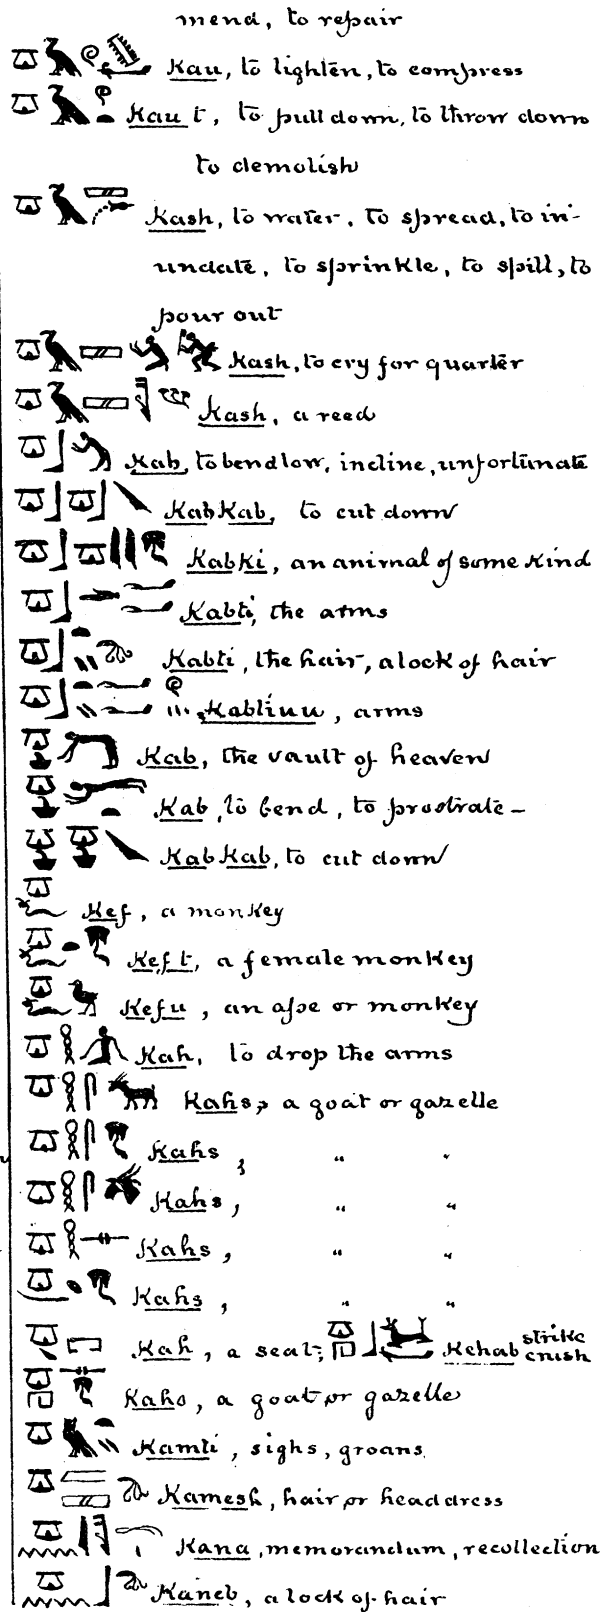 mend, to repair
Kau, to lighten, to compress
Kau t, to pull down, to throw down
to demolish
Kash, to water, to spread, to in-
undate, to sprinkle, to spill, to
pour out
Kash, to cry for quarter
Kash, a reed
Kab, to bend low, incline, unfortunate
KabKab, to cut down
Kabki, an animal of some kind
Kabti, the arms
Kabti, the hair, a lock of hair
Kabtiuu, arms
Kab, the vault of heaven
Kab, to bend, to prostrate-
KabKab, to cut down
Kef, a monkey
Keft, a female monkey
Kefu, an ape or monkey
Kah, to drop the arms
Kahs, a goat or gazelle
Kahs, " "
Kahs, " "
Kahs, " "
Kahs, " "
Kah, a seat; Kehab strike crush
Kahs, a goat or gazelle
Kamti, sighs, groans
Kamesh, hair or headdress
Kana, memorandum, recollection
Kaneb, a lock of hair